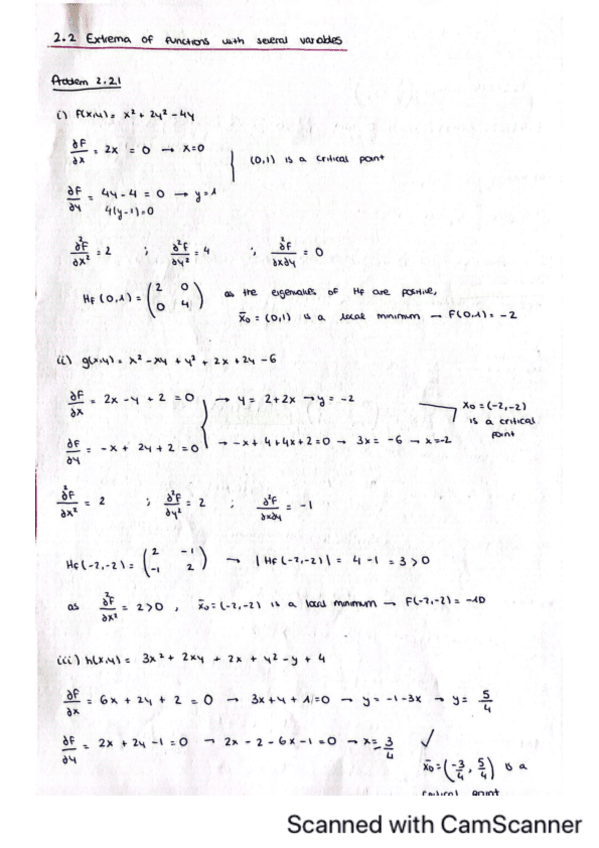 2.2 Extrema of functions with several variables
Problem 2.2.1
i) F(x,y) = x² + 2y² - 4y
∂F/∂x = 2x = 0 → x=0
(0,1) is a critical point
∂F/∂y = 4y - 4 = 0 → y=1
4(y-1)=0
∂²F/∂x² = 2 ; ∂²F/∂y² = 4 ; ∂²F/∂x∂y = 0
HF(0,1) = (2 0
0 4) as the eigenvalues of HF are positive,
x̄0 = (0,1) is a local minimum → F(0,1) = -2
ii) g(x,y) = x² - xy + y² + 2x + 2y - 6
∂F/∂x = 2x - y + 2 = 0 → y = 2+2x → y = -2
x0 = (-2,-2)
is a critical
point
∂F/∂y = -x + 2y + 2 = 0 → -x + 4 + 4x + 2 = 0 → 3x = -6 → x=-2
∂²F/∂x² = 2 ; ∂²F/∂y² = 2 ; ∂²F/∂x∂y = -1
HF(-2,-2) = (2 -1
-1 2) → |HF(-2,-2)| = 4 - 1 = 3 > 0
as ∂²F/∂x² = 2 > 0 , x̄0 = (-2,-2) is a local minimum → F(-2,-2) = -10
iii) h(x,y) = 3x² + 2xy + 2x + y² - y + 4
∂F/∂x = 6x + 2y + 2 = 0 → 3x + y + 1 = 0 → y = -1-3x → y = 5/4
∂F/∂y = 2x + 2y - 1 = 0 → 2x - 2 - 6x - 1 = 0 → x = -3/4 ✓
x̄0 = (-3/4, 5/4) is a
critical point
Scanned with CamScanner